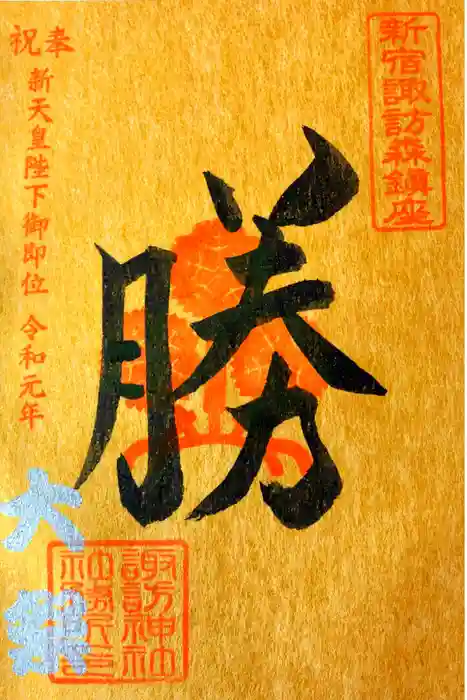 新宿諏訪森鎮座
奉祝
新天皇陛下御即位 令和元年
勝
大祭
諏訪神社